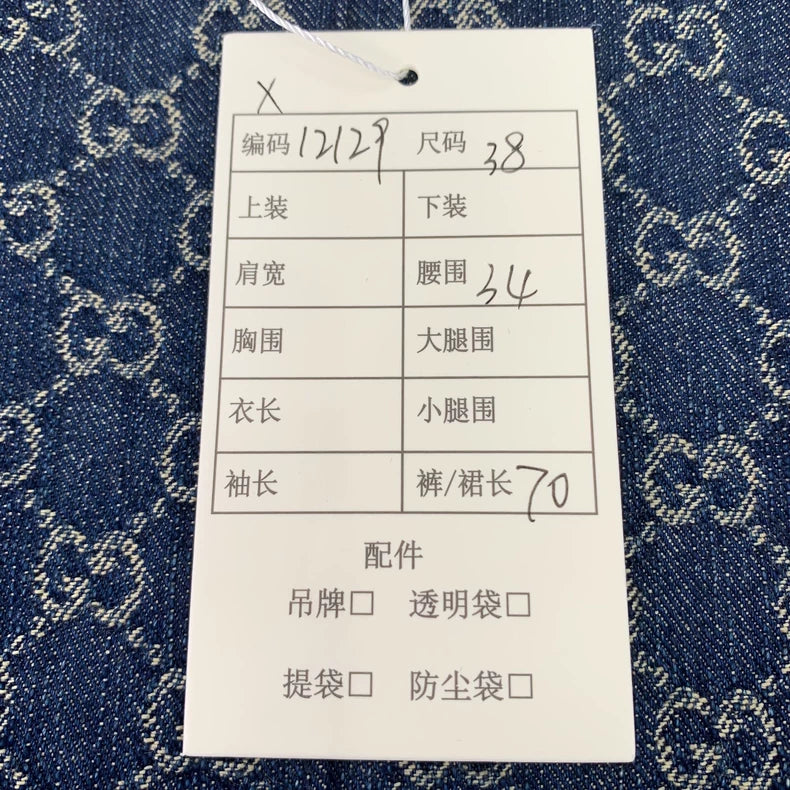 X
编码 12129 尺码 38
上装 下装
肩宽 腰围 34
胸围 大腿围
衣长 小腿围
袖长 裤/裙长 70
配件
吊牌□ 透明袋□
提袋□ 防尘袋□